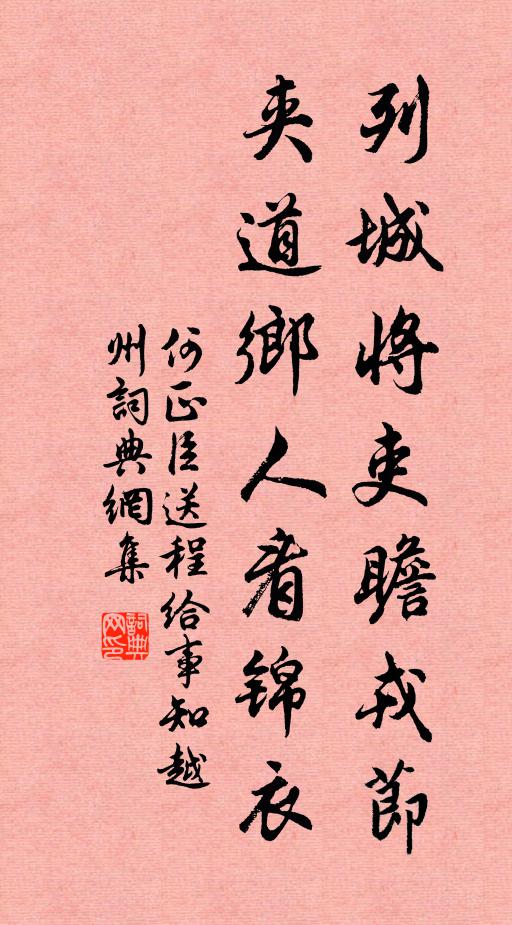 列城將吏瞻戎節
夾道鄉人看錦衣
何正臣送程給事知越
州詞典網集
詞典
网印